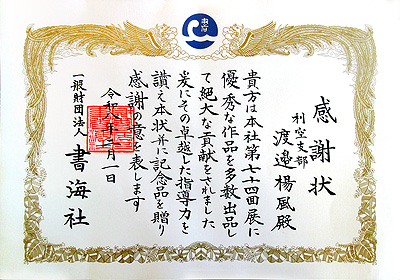 感謝状
利空支部
渡邉楊風殿
貴方は本社第七十四回展に
優秀な作品を多数出品し
て絶大な貢献をされました
茲にその卓越した指導力を
讃え本状并に記念品を贈り
感謝の意を表します
令和八年一月一日
一般財団法人 書海社